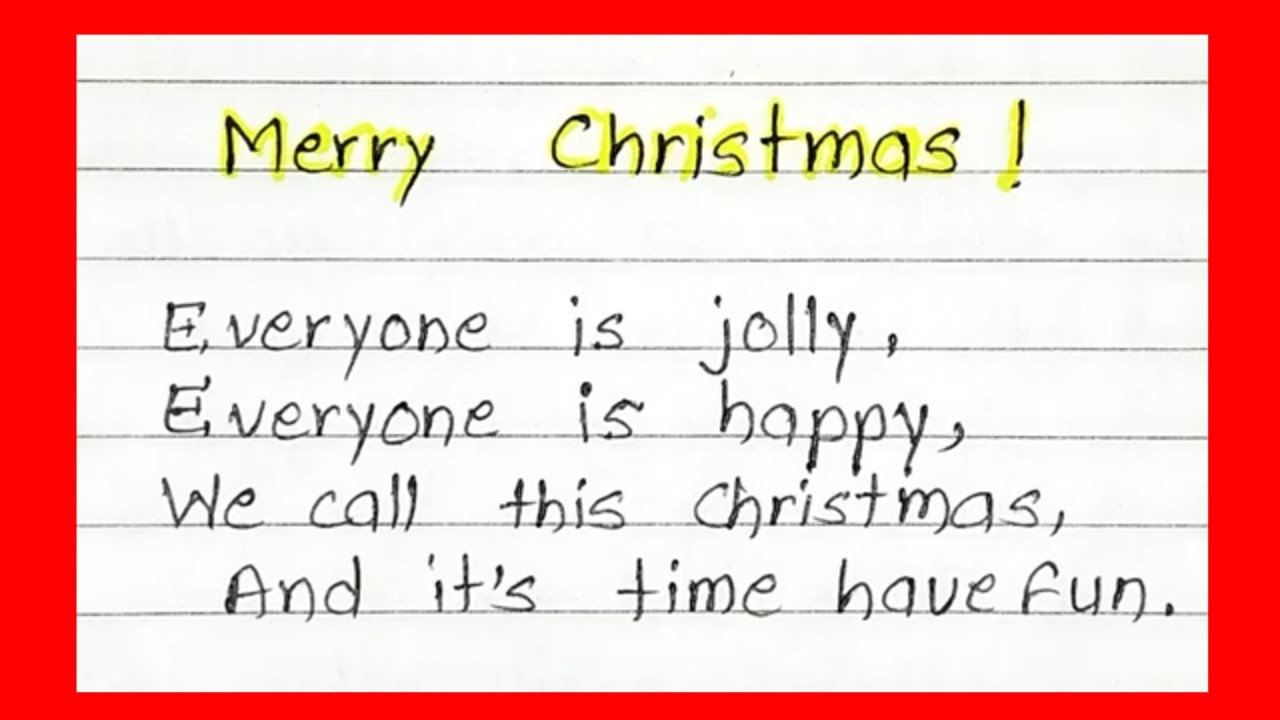 Merry Christmas!
Everyone is jolly,
Everyone is happy,
We call this Christmas,
And it's time have fun.